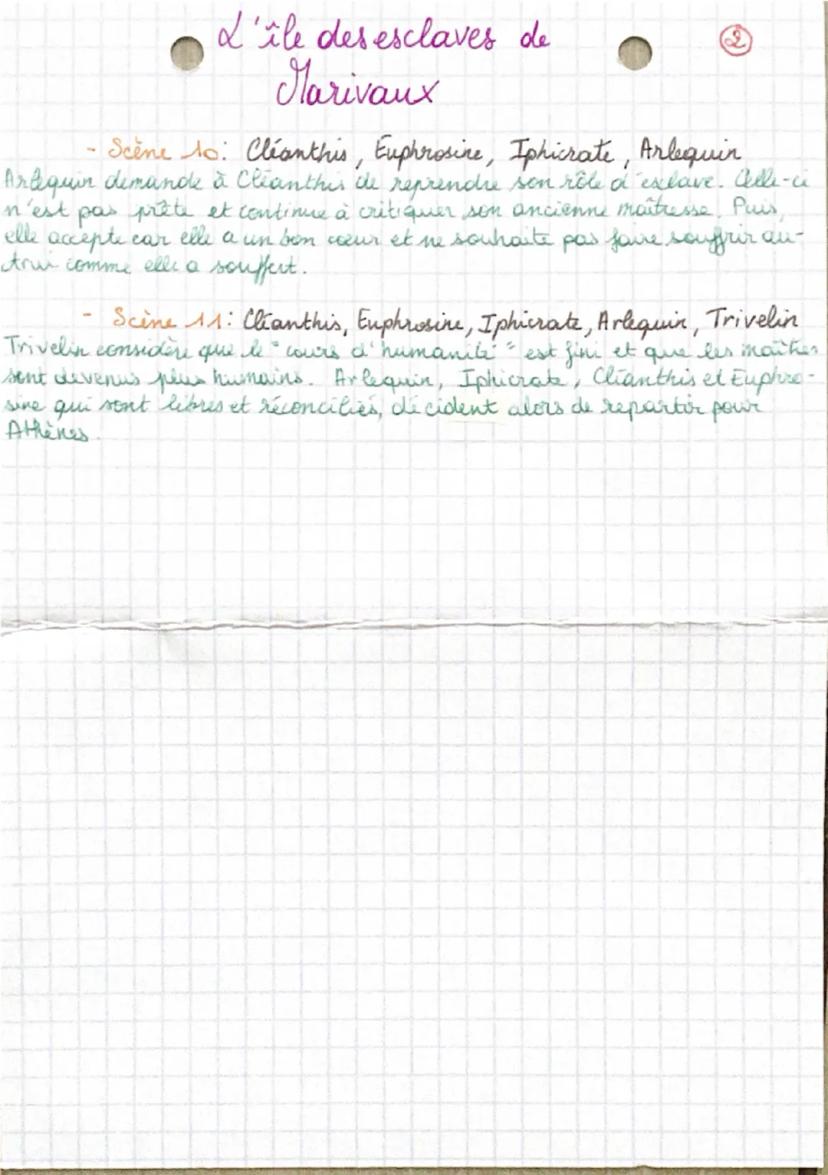 L'île des esclaves de
②
Marivaux
- Scène 10: Cléanthis, Euphrosine, Iphicrate, Arlequin
Arlequin demande à Cléanthis de reprendre son rôle d'esclave. Celle-ci
n'est pas prête et continue à critiquer son ancienne maîtresse. Puis,
elle accepte car elle a un bon cœur et ne souhaite pas faire souffrir au-
trui comme elle a souffert.
- Scène 11: Cléanthis, Euphrosine, Iphicrate, Arlequin, Trivelin
Trivelin considère que le "cours d'humanité" est fini et que les maîtres
sont devenus plus humains. Arlequin, Iphicrate, Cléanthis et Euphro-
sine qui sont libres et réconciliés, décident alors de repartir pour
Athènes.